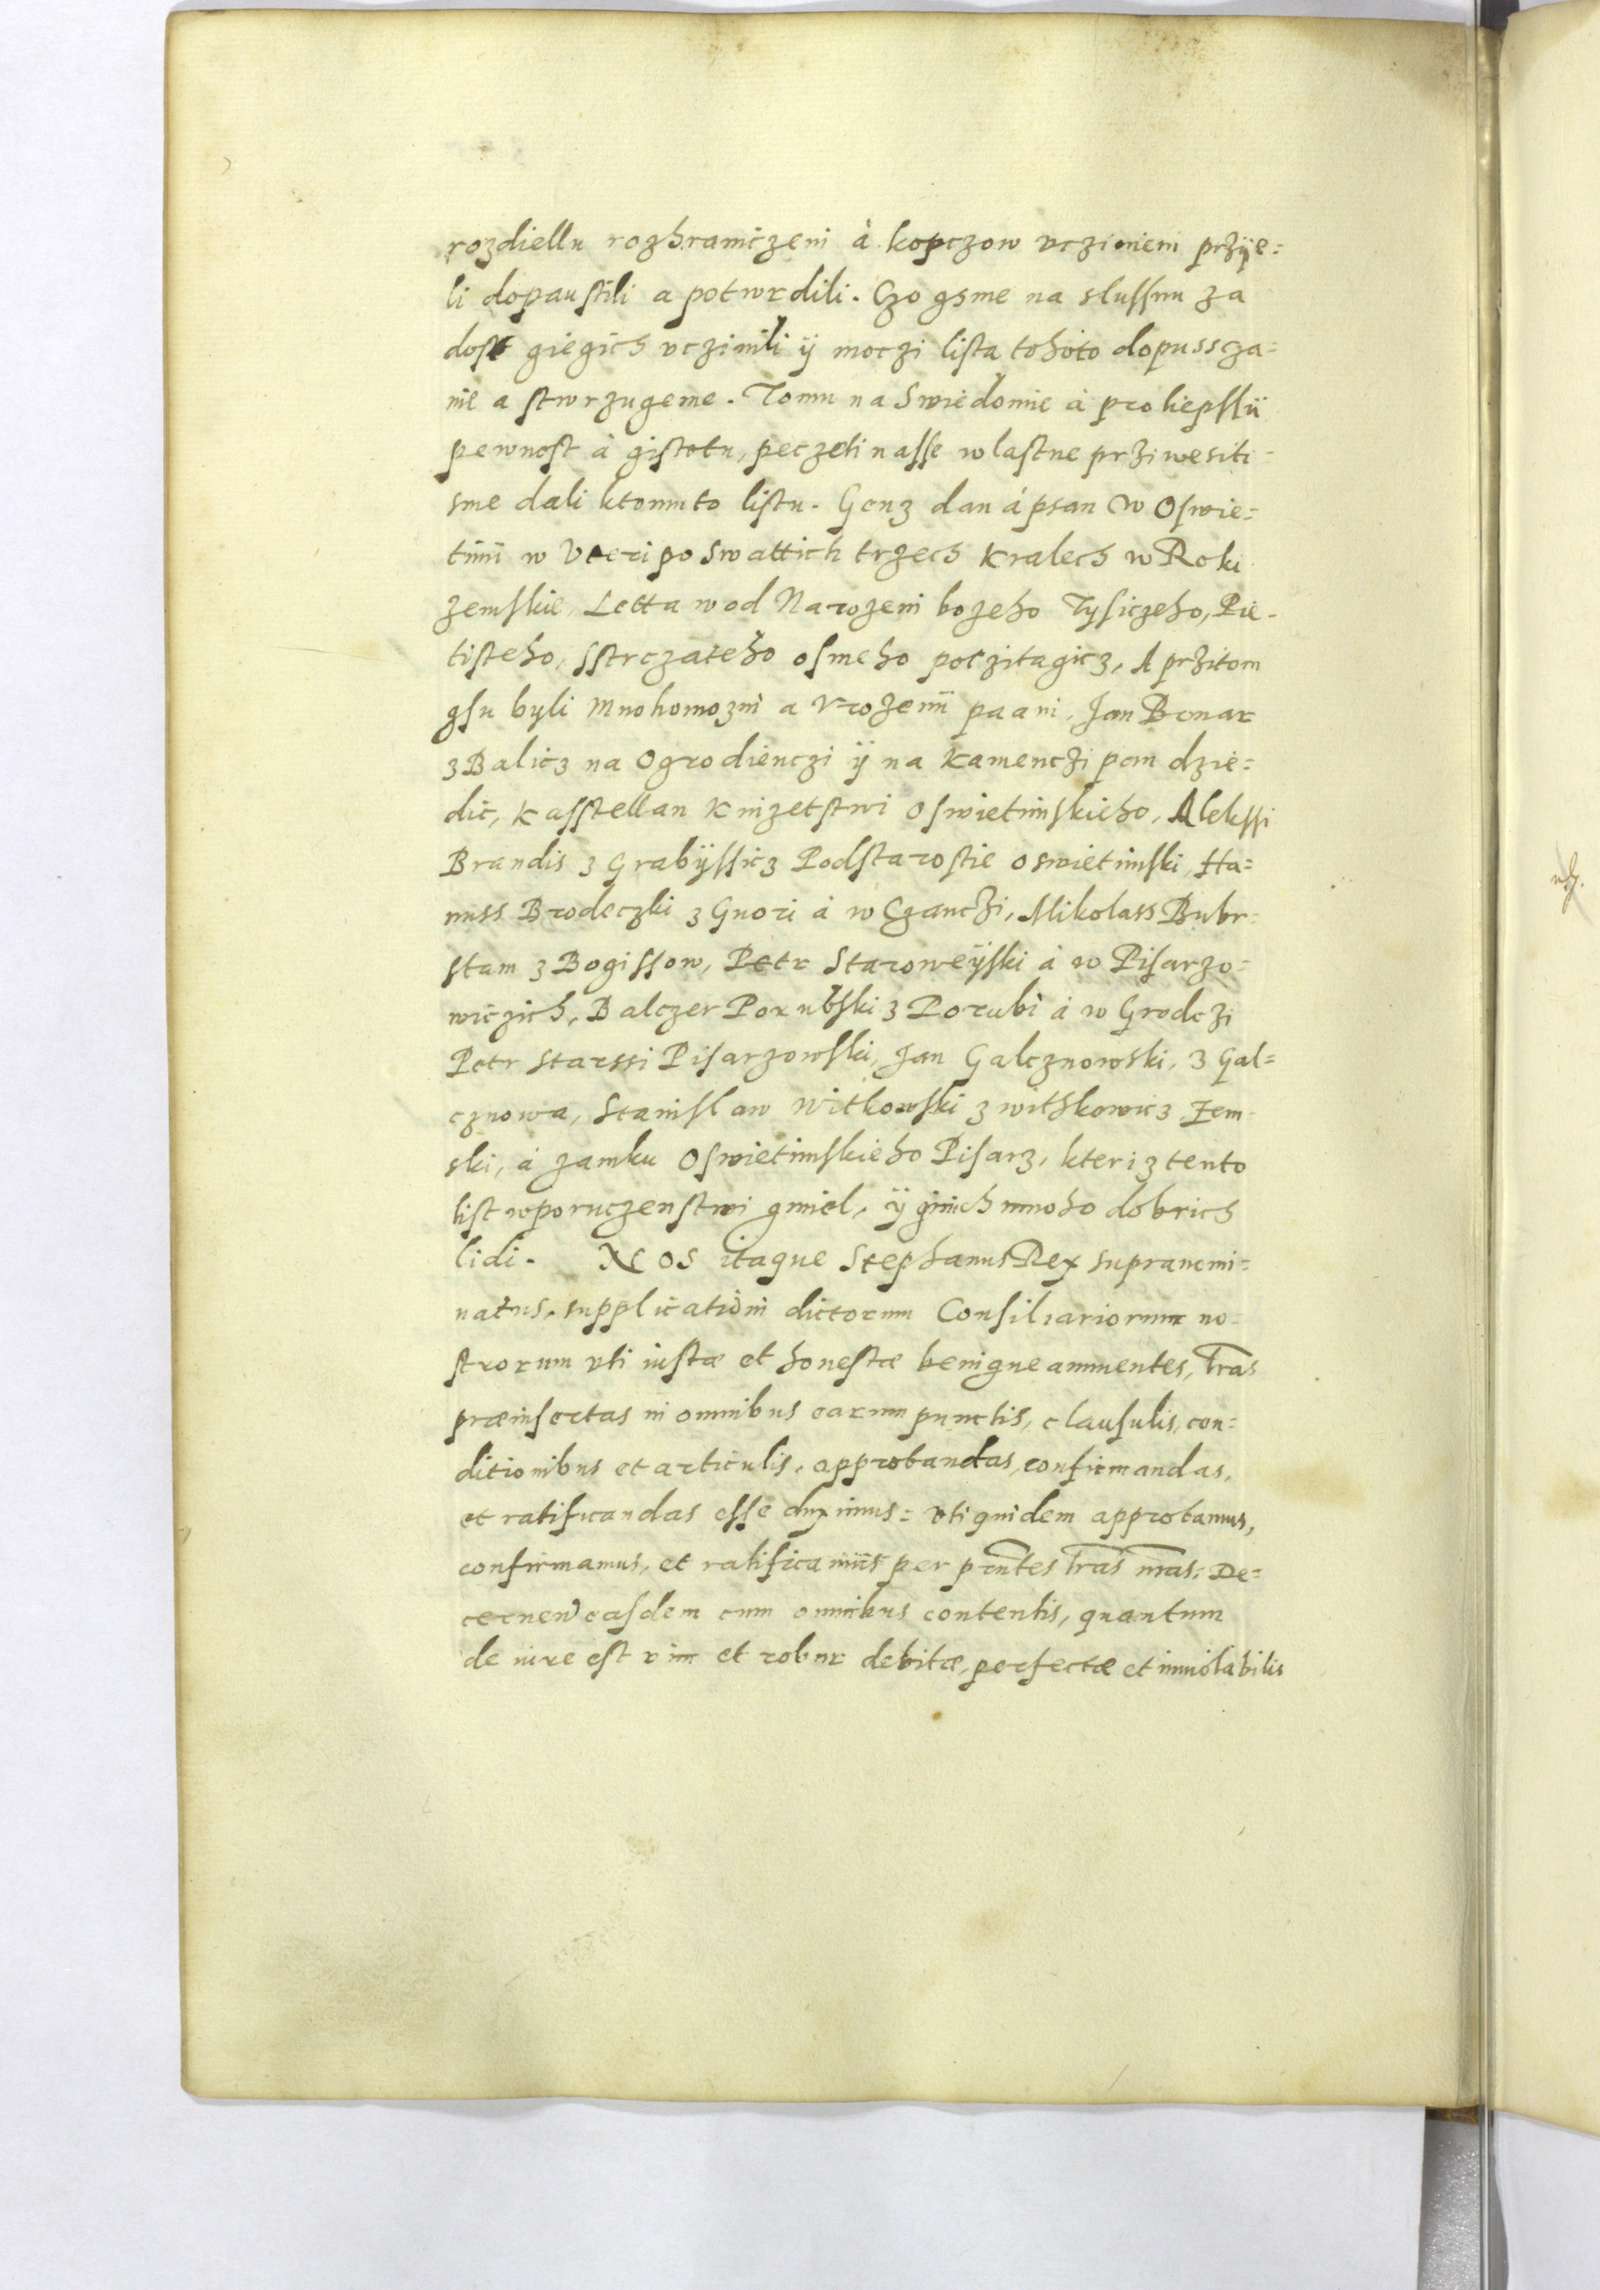 rozdiellu rozhraniczeni à kopczow vczinieni przÿe=
li dopaustili a potwrdili. Czo gsme na slussnu za
dost giegich vczinili ÿ moczi lista tohoto dopussza=
nie a stwrzugeme. Tomu na Swiedomie à pro liepssÿ
pewnost à gistotu, peczeti nasse wlastne prziwesiti
sme dali ktomuto listu. Genz dan à psan w Oswie=
timi w Vteri po Swattich trzech Kralech w Roki
zemskie, Letta wod Narozeni bozeho Tysiczeho, Pie-
tisteho, sstrczateho osmeho pocżitagicz, A przitom
gsu byli Mnohomozni a Vrozenii paani, Jan Bonar
z Balicz na Ogrodienczi ÿ na Kamenczi pan dzie=
dic, Kasstellan Knizetstwi Oswietimskieho, Alekssi
Brandis z Grabÿssicz Podstarostie Oswietimski, Ha=
nuss Brodeczki z Gnori à w Czanczi, Mikolass Bubr-
stam z Bogissow, Petr Staroweÿski à w Pisarzo=
wiczich, Balczer Porubski z Porubi à w Grodczi
Petr Starssi Pisarzowski, Jan Galcznowski, z Gal=
cznowa, Stanislaw Witkowski z withkowicz Zem-
ski, à zamku Oswietimskieho Pisarz, kteri z tento
list wporuczenstwi gmiel, ÿ ginich mnoho dobrich
lidi. NOS itaque Stephanus Rex supranomi=
natus, supplicationi dictorum Consiliariorum no-
strorum vti iustæ et honestæ benigne annuentes, lr̃as
præinsertas in omnibus earum punctis, clausulis, con=
ditionibus et articulis, approbandas, confirmandas,
et ratificandas esse duximus: vti quidem approbamus,
confirmamus, et ratificamus per prñtes lr̃as nr̃as. De=
cernen easdem cum omnibus contentis, quantum
de iure est vim et robur debitæ, perfectæ et inuiolabilis